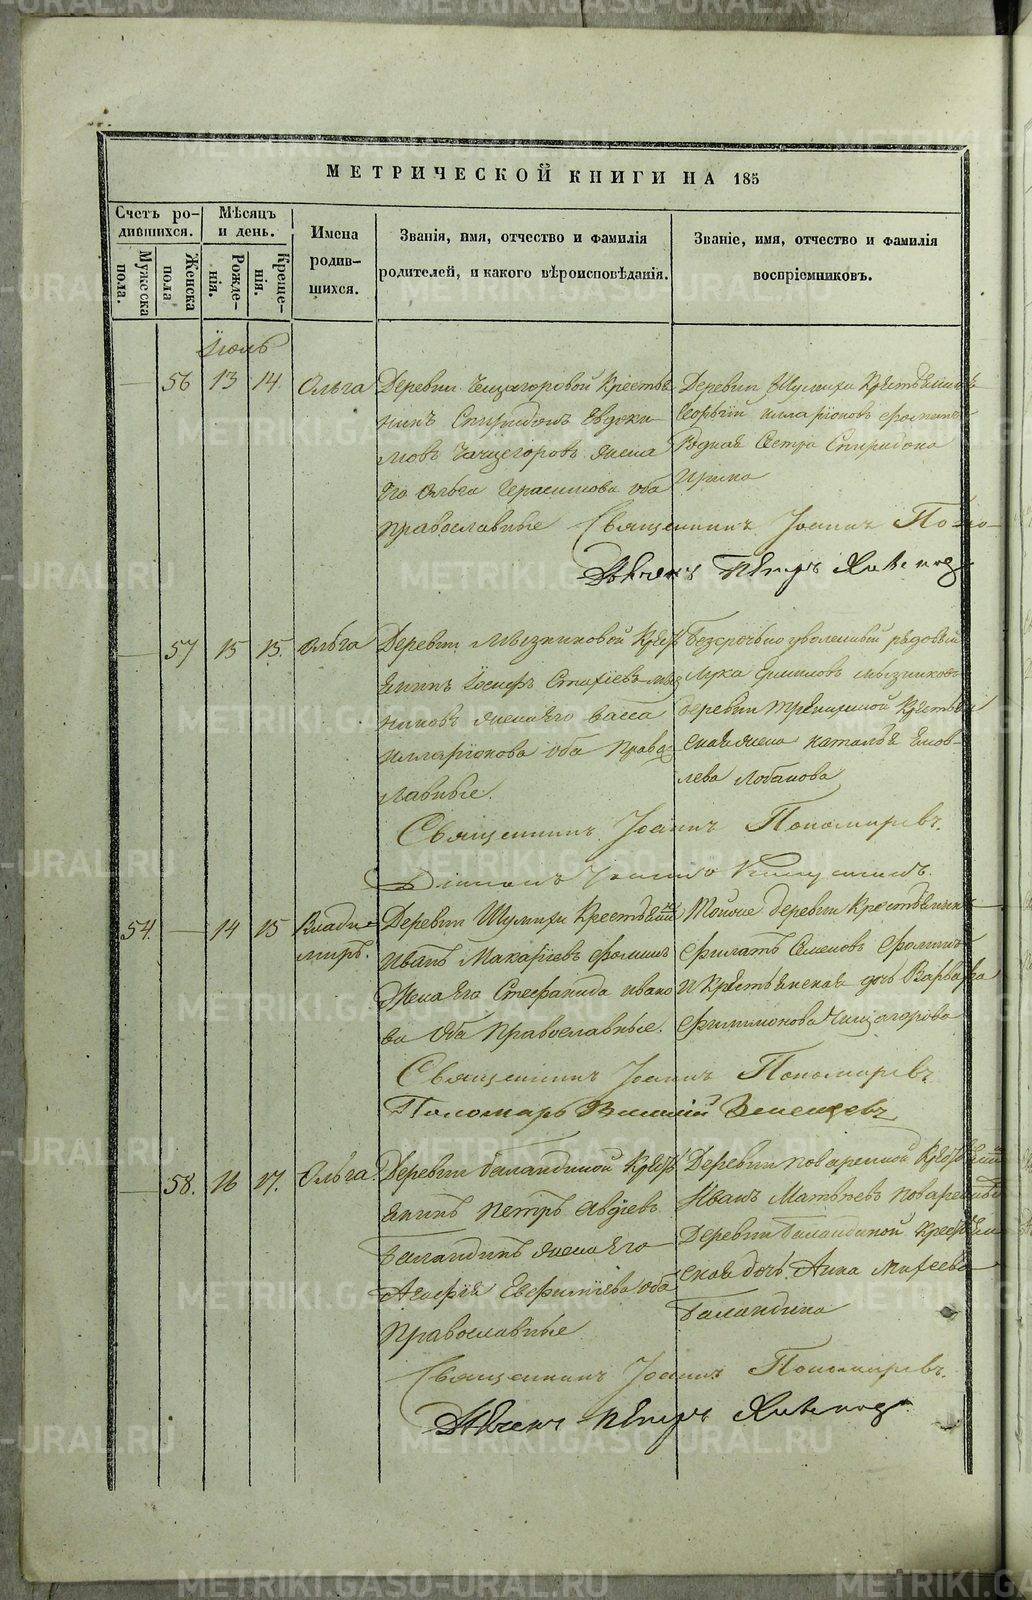 МЕТРИЧЕСКОЙ КНИГИ НА 185
Счетъ ро-
дившихся.
Мужеска
пола.
Женска
пола
Мѣсяцъ
и день.
Рожде-
нія.
Креще-
нія.
Имена
родив-
шихся.
Званія, имя, отчество и фамилія
родителей, и какого вѣроисповѣданія.
Званіе, имя, отчество и фамилія
воспріемниковъ.
Іюль
56 13 14. Ольга
Деревни Чещегоровой Крестья
нинъ Спиридонъ Евдоки
мовъ Чащегоровъ жена
Его Ольга Герасимова оба
православные
Деревни Шумихи Крестьянинъ
Георьгій илларіоновъ фоминъ
Родная Сестра Спиридона
Ирина
Священникъ Іоаннъ Поно-
Дьячекъ Петръ
57 15 15. Ольга
Деревни Мызниковой Крест
янинъ Іосифъ Стахіевъ мыз
никовъ жена Его Васса
илларіонова оба Правос
лавные.
Безсрочьно уволенный рядовый
Лука Ермиловъ мызниковъ
деревни Крестьян
ская жена Наталья Яков-
лева Лобанова
Священникъ Іоаннъ Пономаревъ.
Діаконъ Іоаннъ
54. 14 15 Влади-
миръ.
Деревни Шумихи Крестьянинъ
Иванъ Макаріевъ фоминъ
Жена Его Стефанида ивано
ва Оба Православные.
Тойже деревни Крестьянинъ
Филатъ Семеновъ Фоминъ
И Крестьянская дочь Варвара
Филимонова Чещагорова
Священникъ Іоаннъ Пономаревъ
Пономарь Василій
58. 16 17. Ольга.
Деревни Баландиной Крест
янинъ Петръ Авдіевъ
Баландинъ жена Его
Агафія Евфиміева оба
Православные
Деревни поваренной Крестьянинъ
Иванъ Матвѣевъ поваренныхъ
Деревни Баландиной Крестьян
ская дочь Анна Михеева
Баландина
Священникъ Іоаннъ Пономаревъ.
Дьячекъ Петръ
METRIKI.GASO-URAL.RU